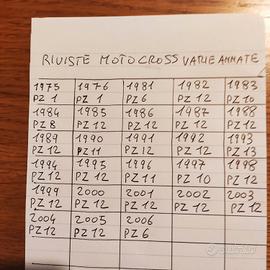 RIVISTE MOTOCROSS VARIE ANNATE
1975 1976 1981 1982 1983
PZ 1 PZ 1 PZ 6 PZ 12 PZ 10
1984 1985 1986 1987 1988
PZ 8 PZ 12 PZ 12 PZ 12 PZ 12
1989 1990 1991 1992 1993
PZ 12 PZ 11 PZ 12 PZ 12 PZ 13
1994 1995 1996 1997 1998
PZ 12 PZ 12 PZ 11 PZ 10 PZ 12
1999 2000 2001 2002 2003
PZ 12 PZ 12 PZ 12 PZ 12 PZ 12
2004 2005 2006
PZ 12 PZ 12 PZ 6